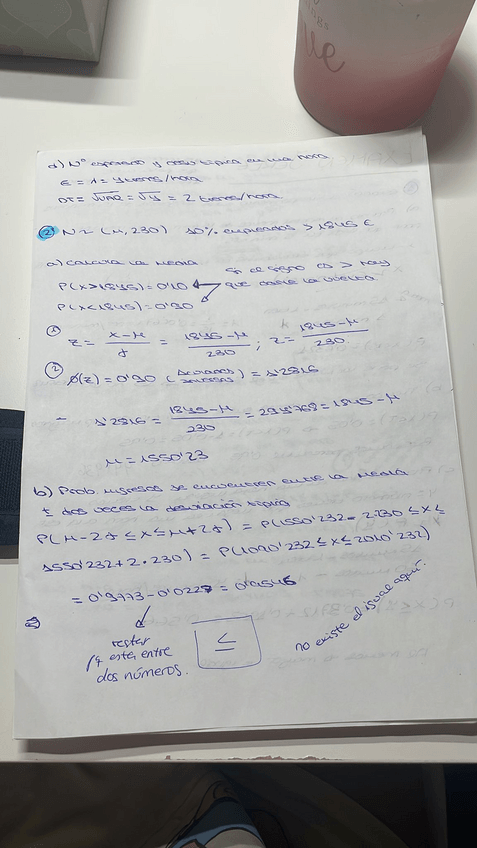 ue
d) Nº esperado y desv típica en una hora
E = λ = 4 trenes/hora
DT = √VAR = √4 = 2 trenes/hora
② N ~ (μ, 230) 10% empleados > 1845 €
a) Calcula la media
Si el signo es > hay
P(x>1845) = 0'10 que darle la vuelta
P(x<1845) = 0'90
① z = x-μ / σ = 1845-μ / 230 ; z = 1845-μ / 230
② φ(z) = 0'90 ( ) = 1'2816
- 1'2816 = 1845-μ / 230 = 294'768 = 1845-μ
μ = 1550'23
b) Prob. ingresos se encuentren entre la media
± dos veces la desviación típica
P(μ-2σ ≤ x ≤ μ+2σ) = P(1550'232 - 2·230 ≤ x ≤
1550'232 + 2·230) = P(1090'232 ≤ x ≤ 2010'232)
= 0'9773 - 0'0227 = 0'9546
restar
esta entre
dos números.
≤
no existe el igual aquí.